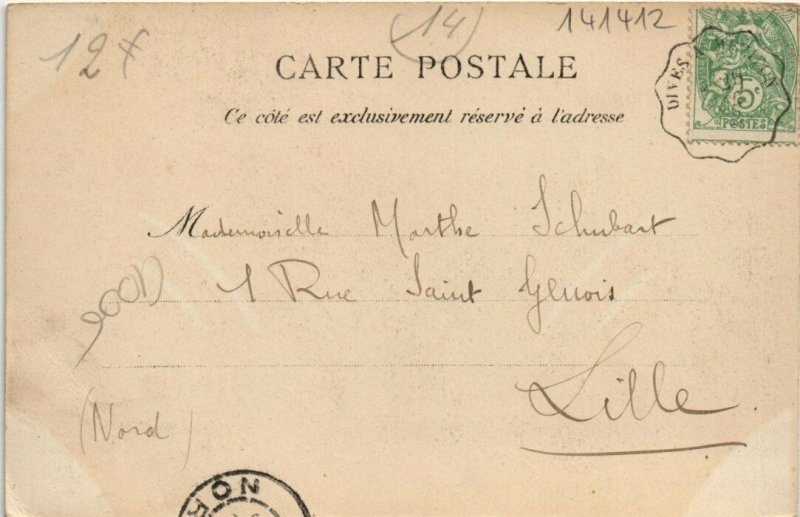 12 F
(14)
141412
CARTE POSTALE
Ce côté est exclusivement réservé à l'adresse
DIVES
5c
POSTES
Mademoiselle Marthe Schubart
1 Rue Saint Genois
Lille
(Nord)
NOR